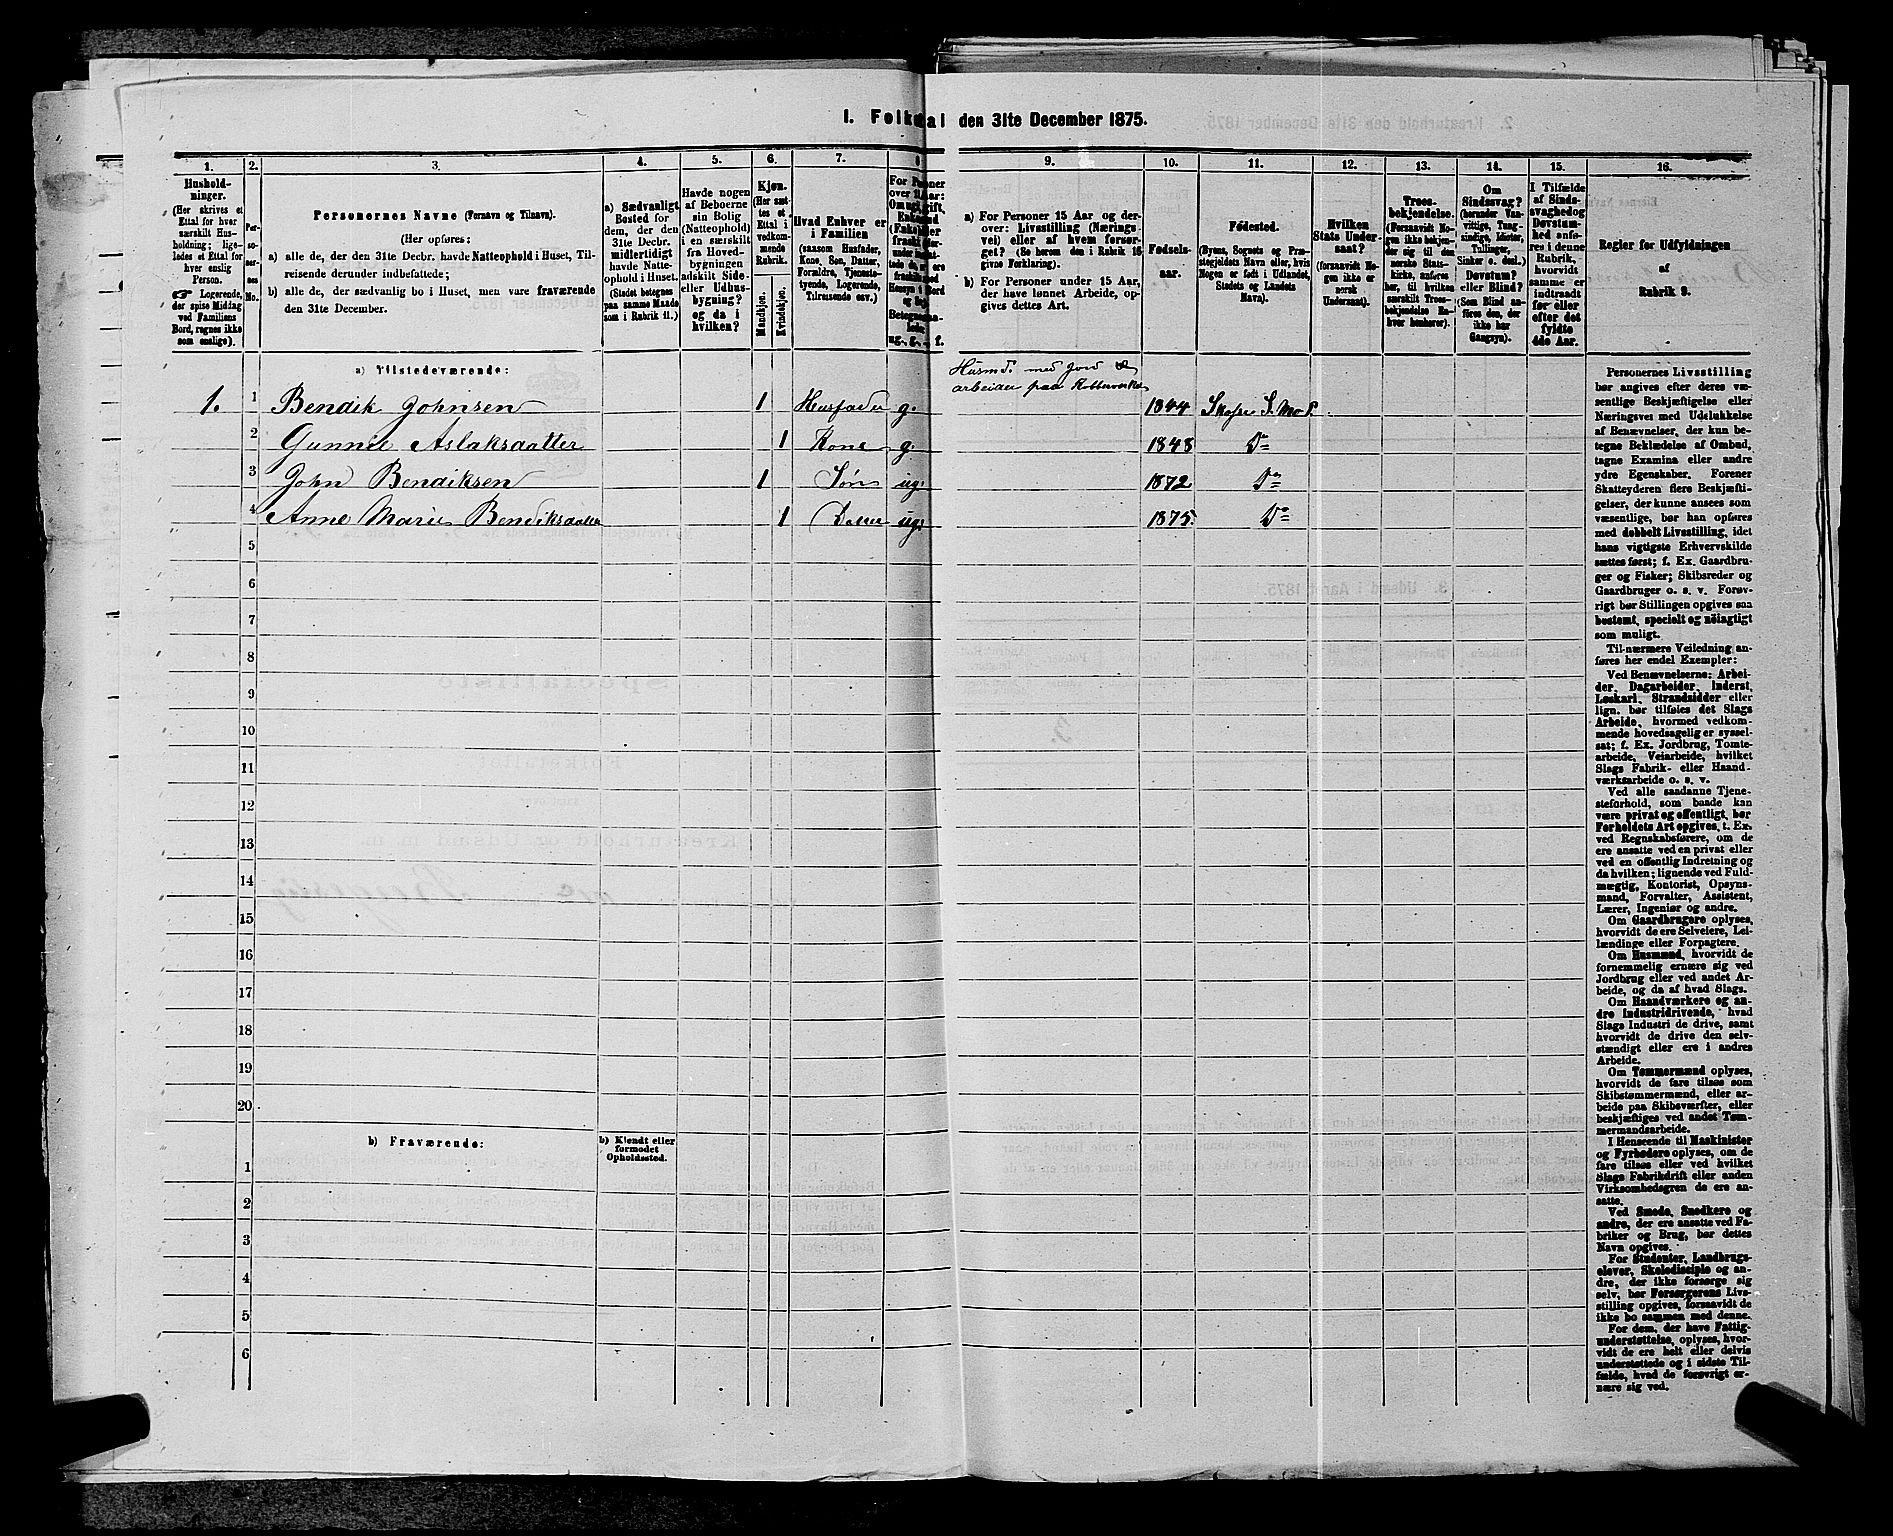 1. Folketal den 31te December 1875.
1. 2. 3. 4. 5. 6. 7. 8. 9. 10. 11. 12. 13. 14. 15. 16.
Husholdninger.
(Her skrives et
Ettal for hver
særskilt Husholdning;
ligeledes et Ettal for
hver enslig
Person.
Logerende,
der spise Middag
ved Familiens
Bord, regnes ikke
som enslige).
Personernes No.
Personernes Navne (Fornavn og Tilnavn).
(Her opføres:
a) alle de, der den 31te Decbr. havde Natteophold i Huset, Tilreisende derunder indbefattede;
b) alle de, der sædvanlig bo i Huset, men vare fraværende
den 31te December.
a) Sædvanligt
Bosted for
dem, der den
31te Decbr.
midlertidigt
havde Natteophold
i Huset.
(Stedet betegnes
paa samme Maade
som i Rubrik 11.)
Havde nogen
af Beboerne
sin Bolig
(Natteophold)
i en særskilt
fra Hovedbygningen
adskilt Side-
eller Udhusbygning?
og da i
hvilken?
Kjøn.
(Her sættes
et
Ettal i
vedkommende
Rubrik.
Mandkjøn.
Kvindekjøn.
Hvad Enhver er
i Familien
(saasom Husfader,
Kone, Søn, Datter,
Forældre, Tjenestetyende,
Logerende,
Tilreisende osv.)
a) For Personer 15 Aar og derover:
Livsstilling (Næringsvei)
eller af hvem forsørget.
(Se herom den i Rubrik 16
givne Forklaring).
b) For Personer under 15 Aar,
der have lønnet Arbeide, opgives
dettes Art.
Fødselsaar.
Fødested.
(Byens, Sognets og Præstegjeldets
Navn eller, hvis
Nogen er født i Udlandet,
Stedets og Landets
Navn).
Hvilken
Stats Undersaat?
(forsaavidt Nogen
ikke er
norsk
Undersaat).
Troesbekjendelse.
(Forsaavidt Nogen
ikke hører
til den
norske Statskirke,
anføres
her, til hvilket
særskilt Troesbekjendelse
Enhver
henhører).
Om
Sindssvag?
(herunder Vanvittige,
Tungsindige,
Idioter,
Tullinger,
Sinker o. desl.)
Døvstum?
eller Blind?
(Som Blind anføres
den, der
ikke har
Gangsyn).
I Tilfælde
af Sindssvaghed og
Døvstumhed
anføres
i denne
Rubrik,
hvorvidt
samme er
indtraadt
før eller
efter det
fyldte
4de Aar.
Regler for Udfyldningen
af
Rubrik 9.
a) Tilstedeværende:
Husmd. med Jord &
arbeider paa
1. 1 Bendik Johnsen 1 Husfader g. 1844 S. Mo P.
2 Gunnil Aslaksdatter 1 Kone g. 1848 Do
3 John Bendiksen 1 Søn ug. 1872 Do
4 Anne Marie Bendiksdatter 1 Datter ug. 1875. Do
5
6
7
8
9
10
11
12
13
14
15
16
17
18
19
20
b) Fraværende: b) Kjendt eller
formodet
Opholdssted.
1
2
3
4
5
6
Personernes Livsstilling
bør angives efter deres væsentlige
Beskjæftigelse eller
Næringsvei med Udelukkelse
af Benævnelser, der kun betegne
Beklædelse af Ombud,
tagne Examina eller andre
ydre Egenskaber. Forener
Skatteyderen flere Beskjæftigelser,
der kunne ansees som
væsentlige, bør han opføres
med dobbelt Livsstilling, idet
hans vigtigste Erhvervskilde
sættes først; f. Ex. Gaardbruger
og Fisker; Skibsreder og
Gaardbruger o. s. v. Forøvrigt
bør Stillingen opgives saa
bestemt, specielt og nøiagtigt
som muligt.
Til nærmere Veiledning anføres
her endel Exempler:
Ved Benævnelserne: Arbeider,
Dagarbeider, Inderst,
Løskarl, Strandsidder eller
lign. bør tilføies det Slags
Arbeide, hvormed vedkommende
hovedsagelig er sysselsat;
f. Ex. Jordbrug, Tomtearbeide,
Veiarbeide, hvilket
Slags Fabrik- eller Haandværksarbeide
o. s. v.
Ved alle saadanne Tjenesteforhold,
som baade kan
være privat og offentligt, bør
Forholdets Art opgives, t. Ex.
ved Regnskabsførere, om de
ere ansatte ved en privat eller
ved en offentlig Indretning og
da hvilken; lignende ved Fuldmægtig,
Kontorist, Opsynsmand,
Forvalter, Assistent,
Lærer, Ingeniør og andre.
Om Gaardbrugere oplyses,
hvorvidt de ere Selveiere, Leilændinge
eller Forpagtere.
Om Husmænd, hvorvidt de
fornemmelig ernære sig ved
Jordbrug eller ved andet Arbeide,
og da af hvad Slags.
Om Haandværkere og andre
Industridrivende, hvad
Slags Industri de drive, samt
hvorvidt de drive den selvstændigt
eller ere i andres
Arbeide.
Om Tømmermænd oplyses,
hvorvidt de fare tilsøs som
Skibstømmermænd, eller arbeide
paa Skibsværfter, eller
beskjæftiges ved andet Tømmermandsarbeide.
I Henseende til Maskinister
og Fyrbødere oplyses, om de
fare tilsøs eller ved hvilket
Slags Fabrikdrift eller anden
Virksomhedsgren de ere ansatte.
Ved Smede, Snedkere og
andre, der ere ansatte ved Fabriker
og Brug, bør dettes
Navn opgives.
For Studenter, Landbrugselever,
Skoledisciple og andre,
der ikke forsørge sig
selv, bør Forsørgerens Livsstilling
opgives, forsaavidt de
ikke bo sammen med denne.
For dem, der have Fattigunderstøttelse,
oplyses, hvorvidt
de ere helt eller delvis
understøttede og i sidste Tilfælde,
hvad de forøvrigt ernære
sig ved.